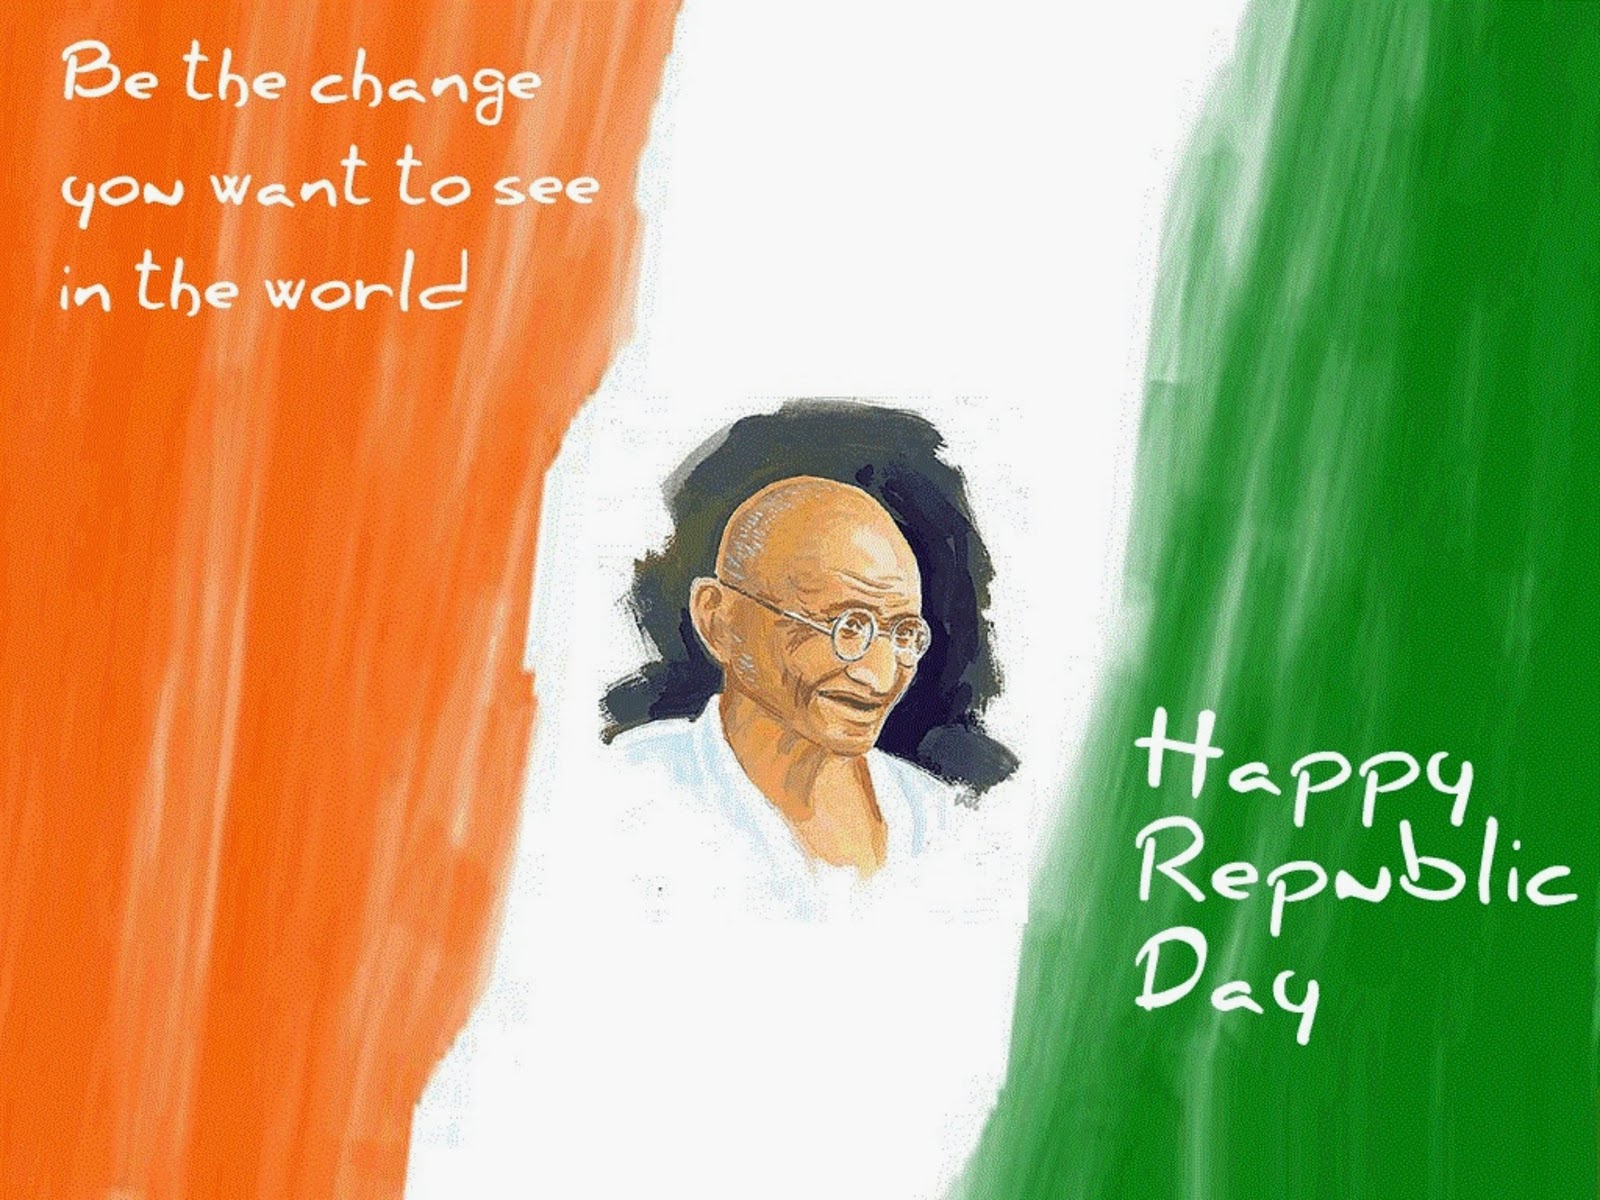 Be the change
you want to see
in the world
Happy
Republic
Day